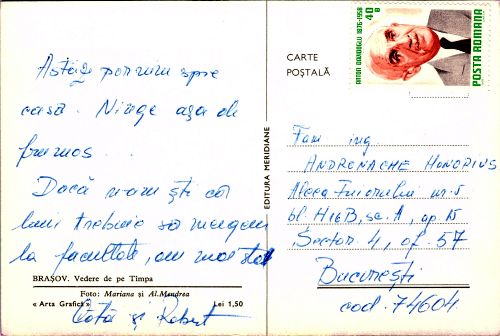 Astăzi pornim spre
casă. Ninge așa de
frumos...
Dacă n-am ști că
luni trebuie să mergem
la facultate, am mai sta
BRAȘOV. Vedere de pe Tîmpa
Foto: Mariana și Al. Mendrea
« Arta Grafică »
Lei 1,50
și Robert
EDITURA MERIDIANE
CARTE
POȘTALĂ
40 B
ANTON DAVIDOGLU 1876-1958
POSTA ROMANA
Fam ing
ANDRONACHE HONORIUS
Aleea Fuiorului nr. 5
bl H16B, sc. A, ap. 15
Sector 4, of. 57
București
cod. 74604